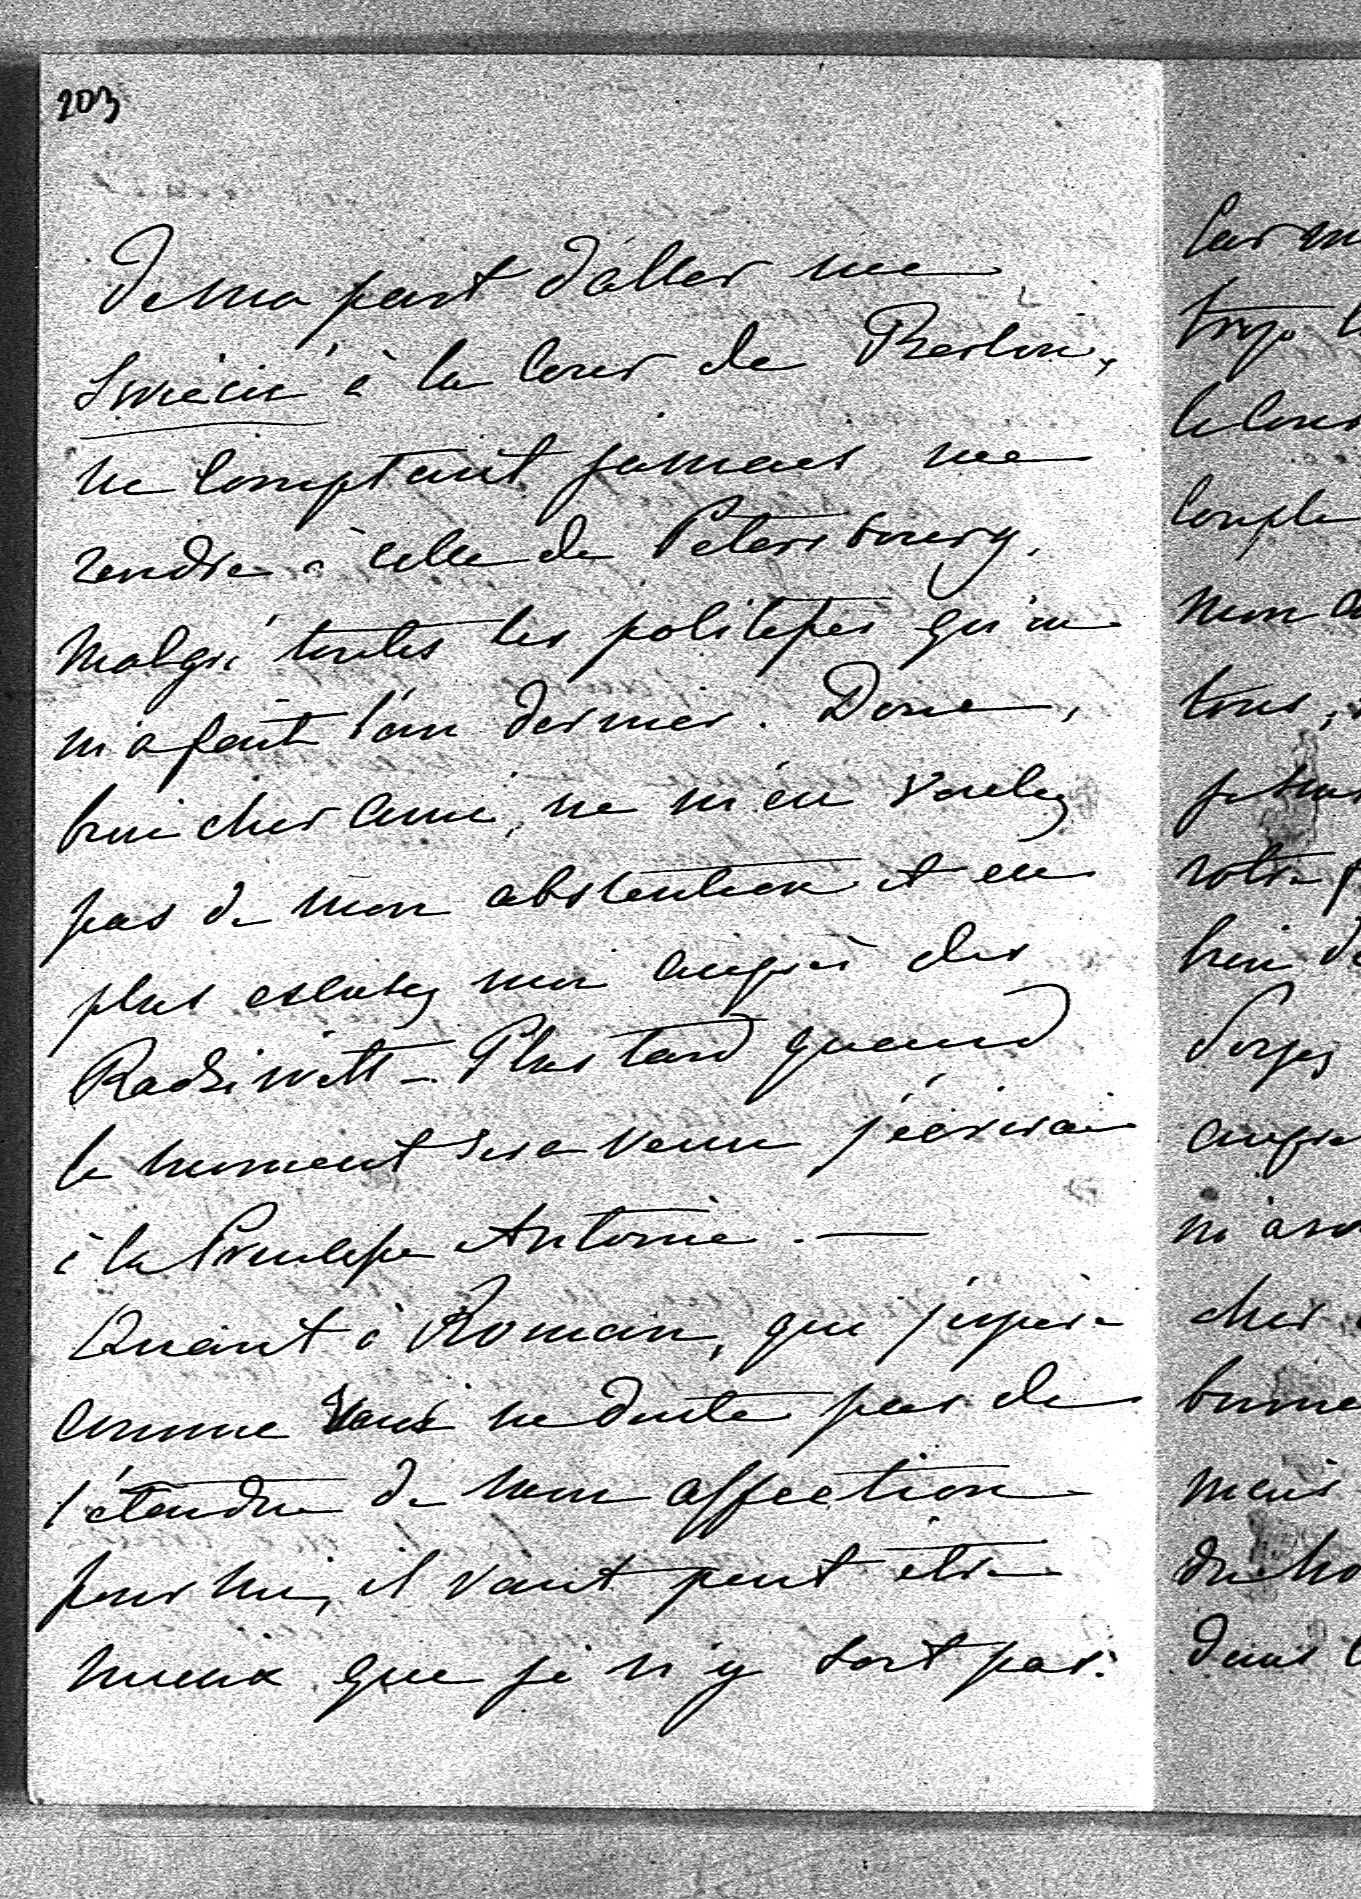 203
de ma part d'aller me
à la Cour de Berlin,
ne comptant jamais me
rendre à celle de Petersbourg,
malgré toutes les politesses qu'on
m'a fait l'an dernier. Donc,
bien cher ami, ne m'en voulez
pas de mon abstention et en
plus excusez moi auprès des
Radziwill – Plus tard quand
le moment sera venu j'écrirai
à la Princesse Antoine. —
Quant à Roman, qui j'espère
comme vous ne doute pas de
l'étendue de mon affection
pour lui, il vaut peut être
mieux que je n'y soit pas.
trop
mon
tous,
votre
bien
cher
mais
dans